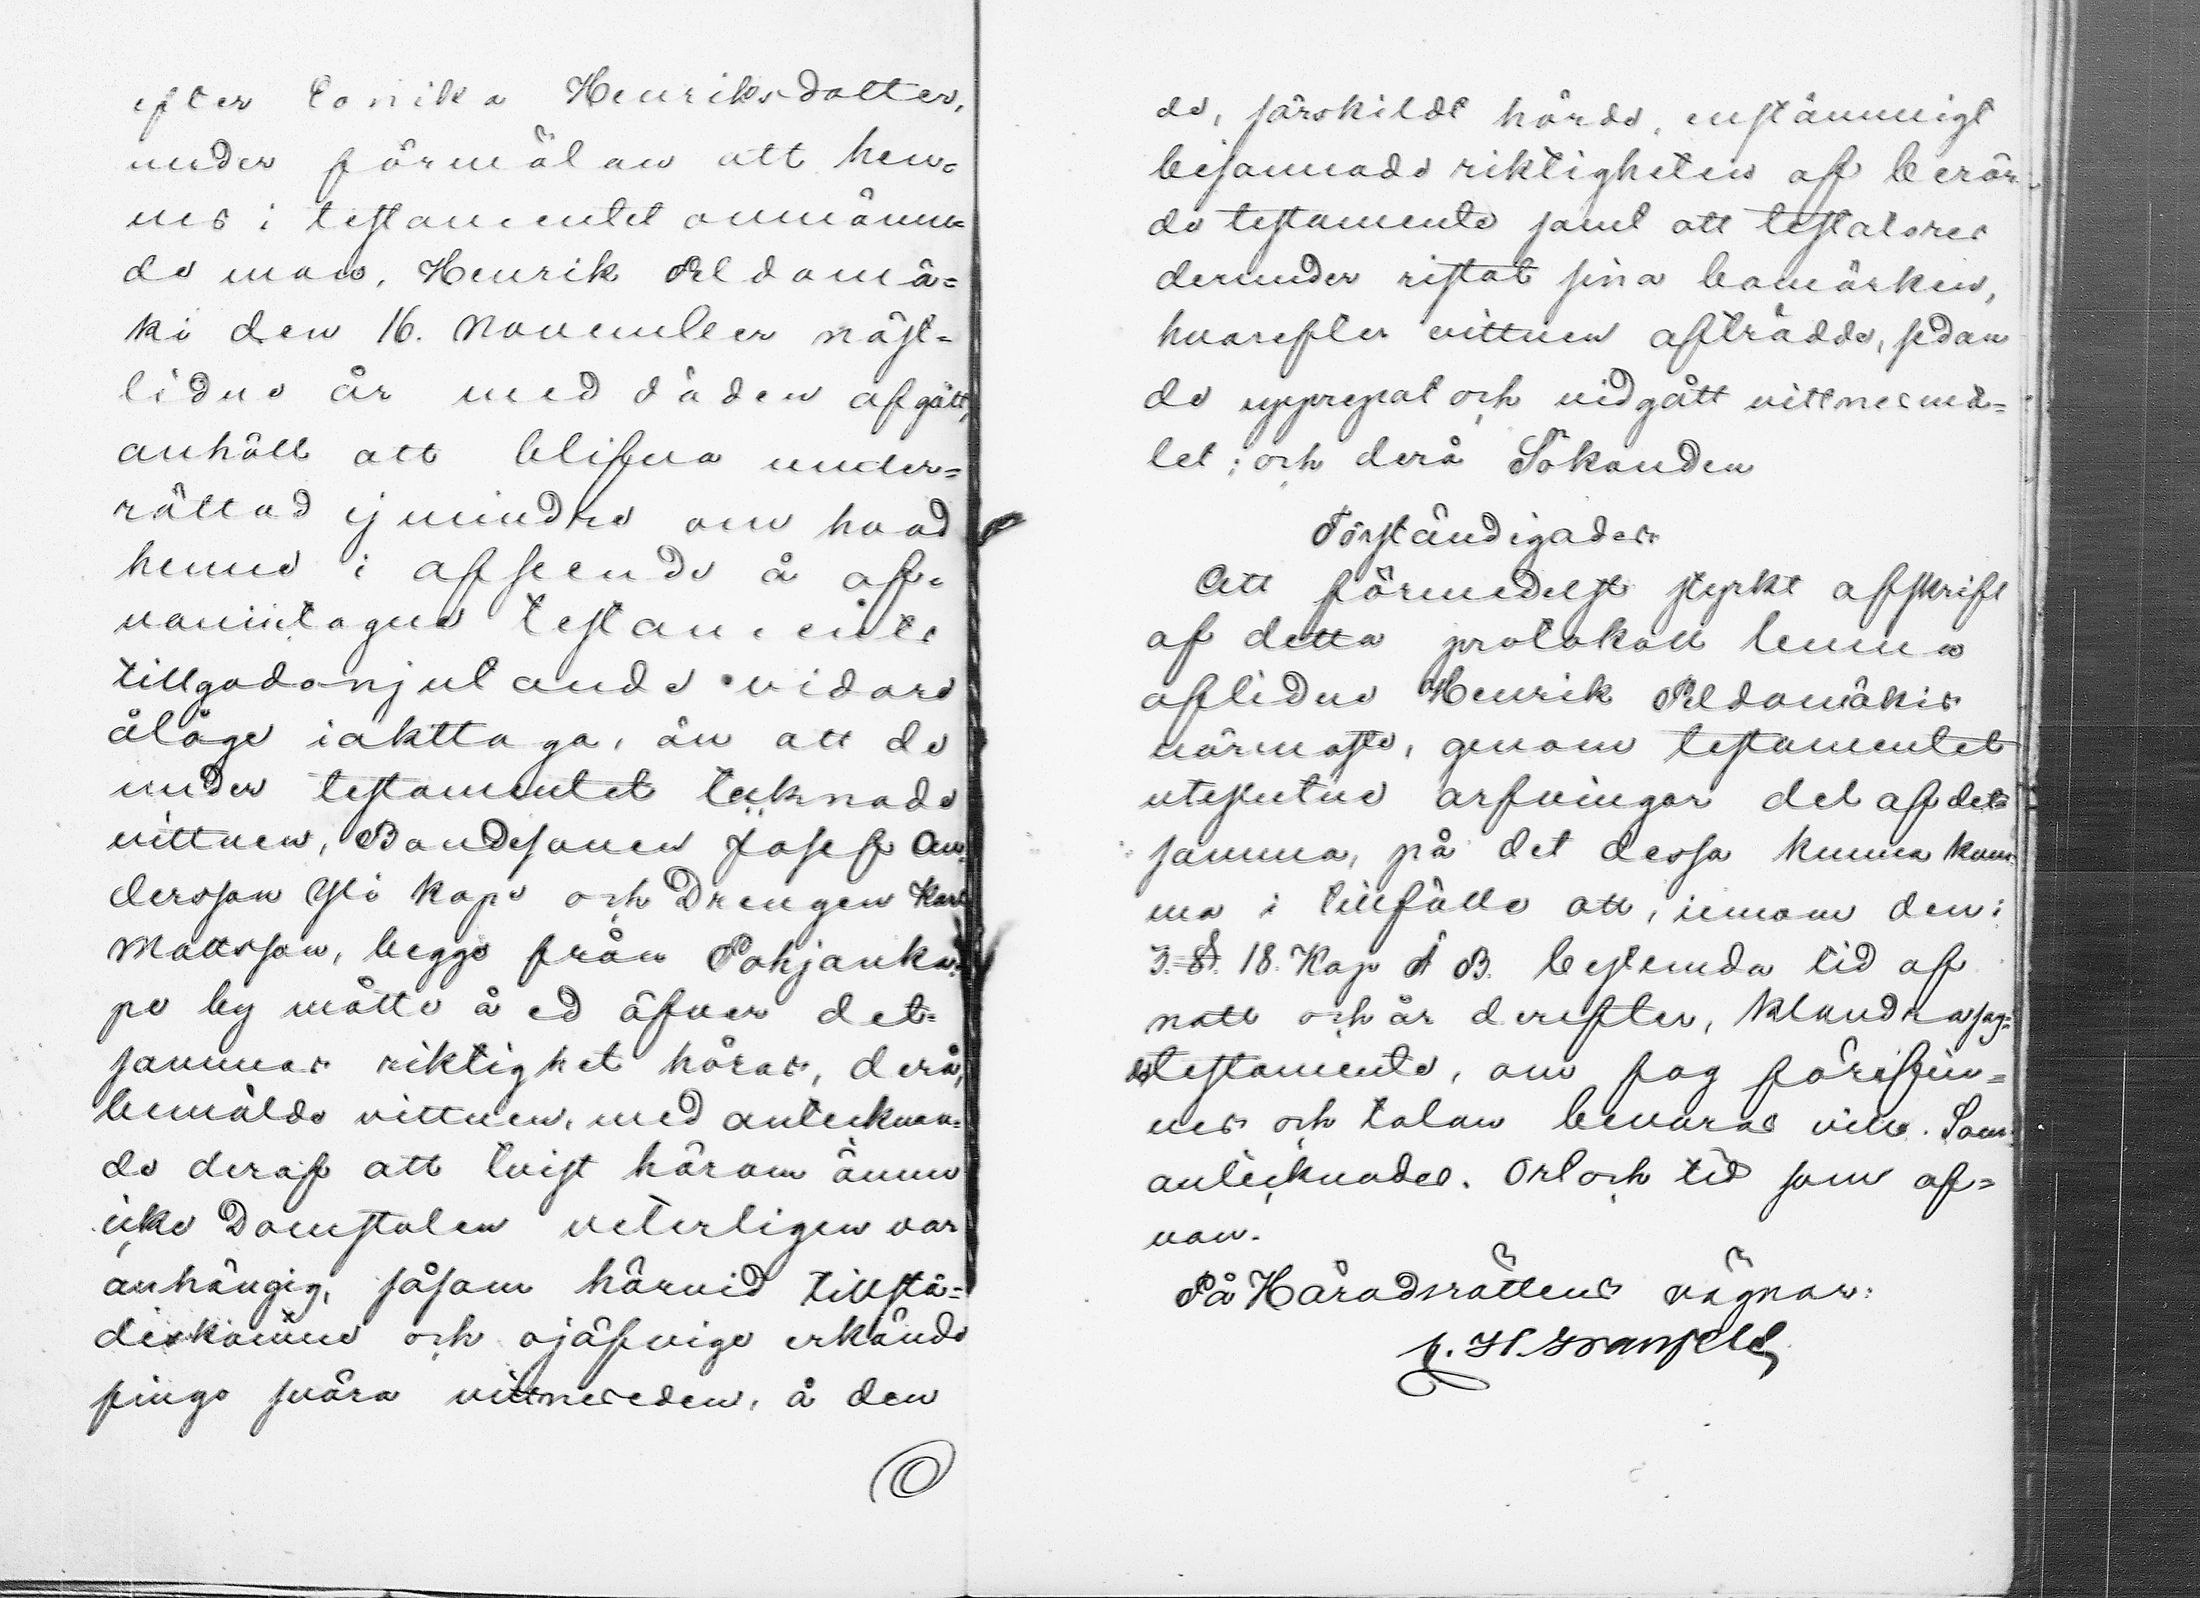 efter Carika Henriksdotter,
under förmälan att hen-
nes i testamentet omnämn-
de man, Henrik Peldomä-
ki den 16. November näst-
lidne år med döden afgått,
anhöll att blifva under-
rättad ej mindre om hvad
henne i afseende å of-
vanintagne testaments
tillgodonjutande vidare
åläge iakttaga, än att de
under testamentet tecknade
vittnen, Bondesonen Josef An-
dersson Yli kape och Drengen Karl
Mattsson, begge från Pohjanka-
pe by måtte å ed öfver det-
sammas riktighet höras, derå,
bemälde vittnen, med antecknan-
de deraf att tvist härom ännu
icke Domstolen veterligen var
anhängig, såsom härvid tillstä-
deskomne och ojäfvige erkände
fingo svära vittneseden, å den
de, särskildt hörde, enstämmigt
bejannade riktigheten af berör-
de testamente samt att testatores
derunder ristat sina bomärken,
hvarefter vittnen afträdde, sedan
de upprepat och vidgått vittnesmå-
let; och derå Sökanden
Förständigades:
Att förmedelst styrkt afskrift
af detta protokoll lemna
aflidne Henrik Peldomäkis
närmaste, genom testamentet
uteslutne arfvingar del af det-
samma, på det dessa kunna kom-
ma i tillfälle att, innom den i
3. §. 18. Kap Ä B. bestemda tid af
natt och år derefter, klandra sag-
da testamente, om fog förefin-
nes och talan bevaras vill. Som
antecknades. Ort och tid som of-
van.
På Häradsrättens vägnar: